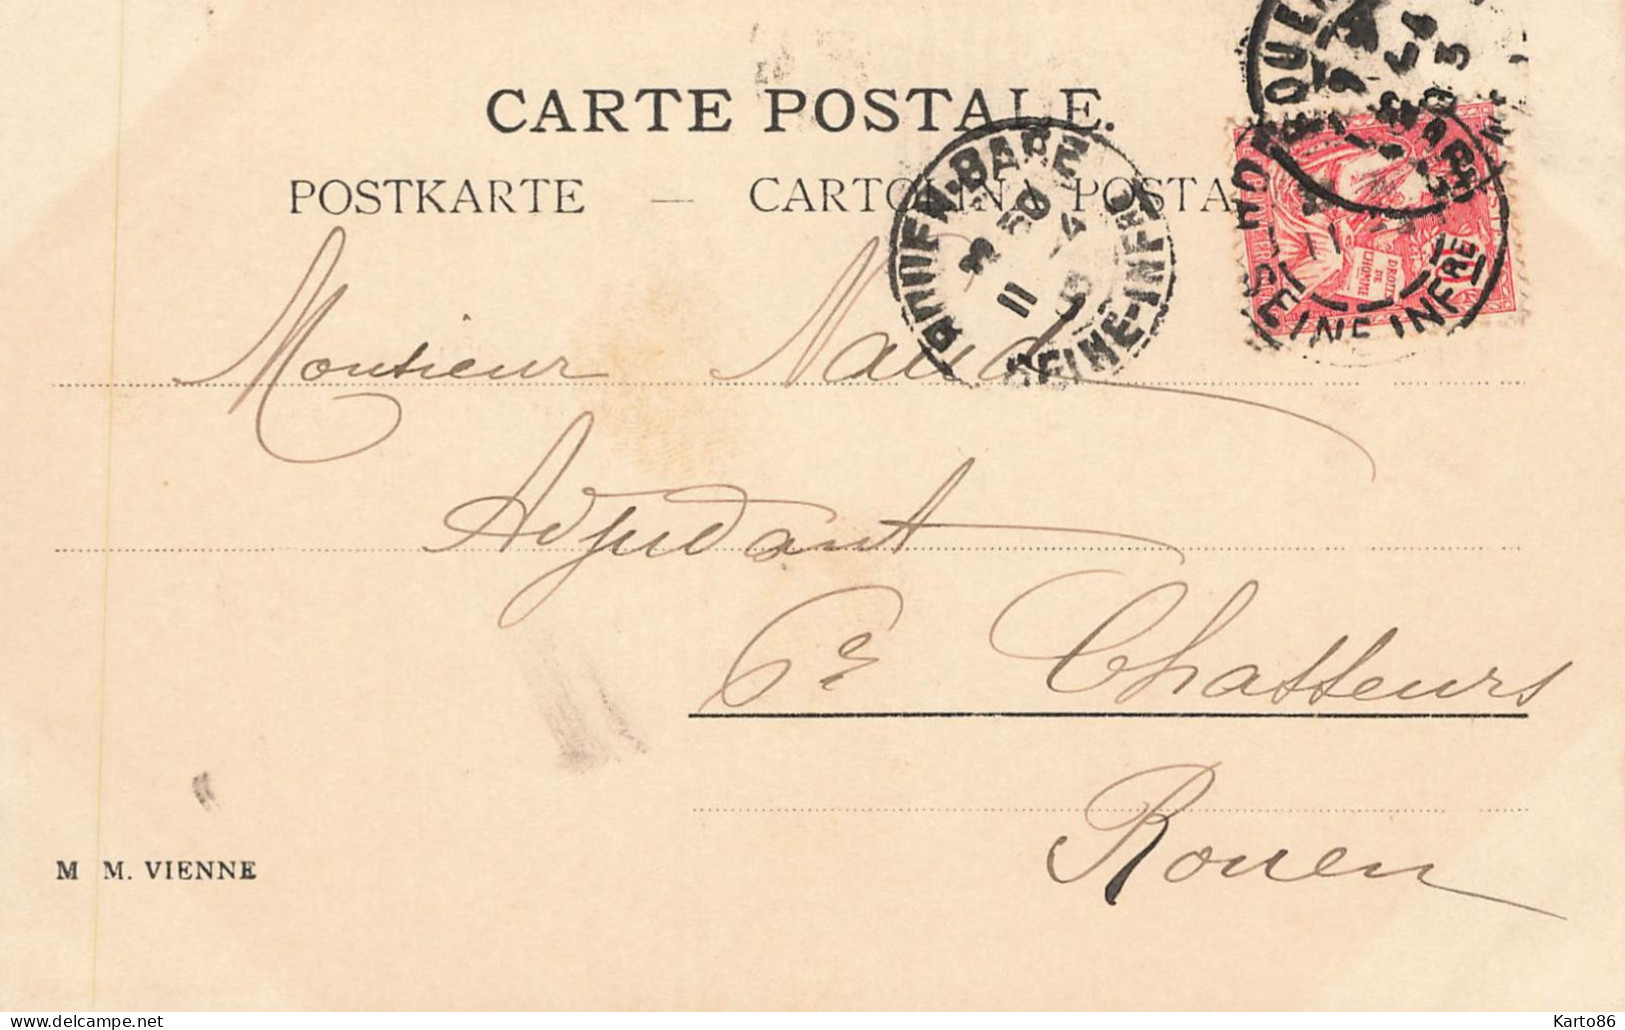 CARTE POSTALE.
POSTKARTE — CARTOLINA POSTA
Monsieur Naud
Adjudant
6e Chasseurs
Rouen
M M. VIENNE
SEINE-INFRE
SEINE INFRE
11
DROITS
DE
L'HOMME
10
delcampe.net
Karto86